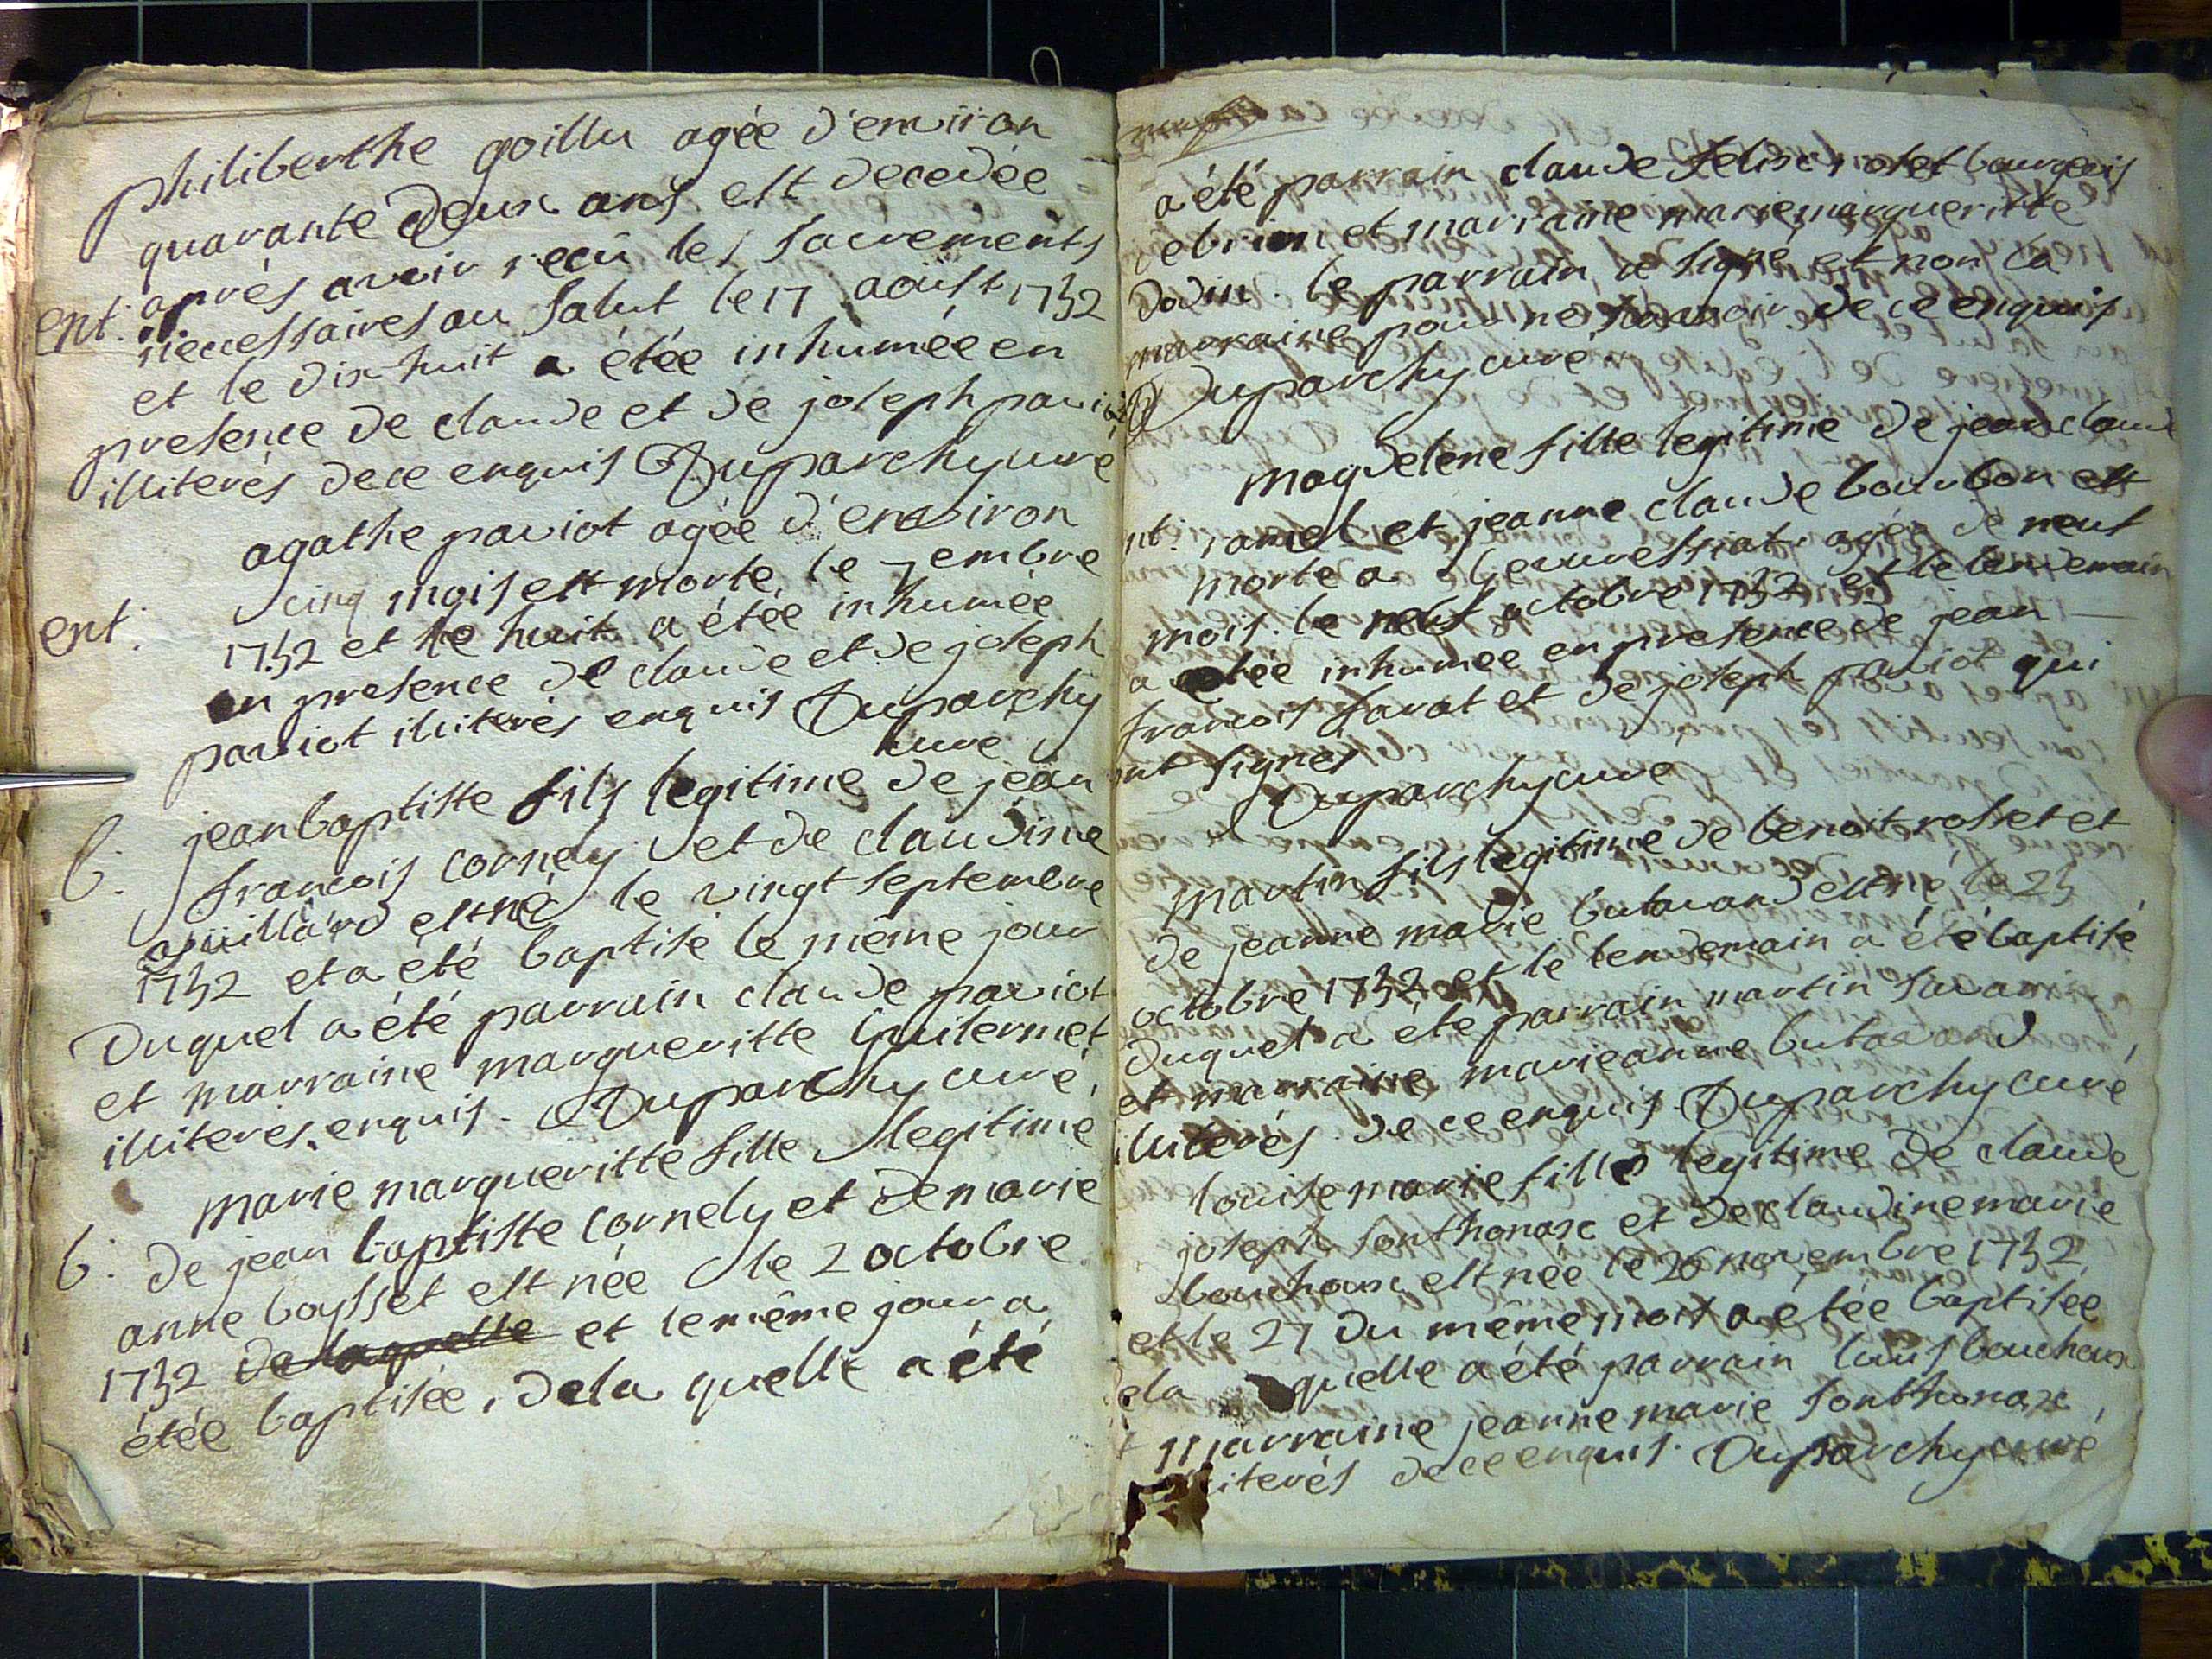 philiberthe goillu agée d'environ
quarante deux ans est decedée
après avoir reçû les sacrements
ent. necessaires au salut le 17 aoüst 1752
et le dix-huit a étée inhumée en
presence de claude et de joseph paviot
illiterés de ce enquis Duparchy curé
agathe paviot agée d'environ
cinq mois est morte le 7embre
ent. 1752 et le huit a étée inhumée
en presence de claude et de joseph
paviot illiterés enquis Duparchy
curé
jean baptiste fils legitime de jean
b. francois cornely et de claudine
est né le vingt septembre
1752 et a été baptisé le même jour
duquel a été parrain claude paviot
et marraine margueritte Guilermet
illiterés enquis. Duparchy curé
marie margueritte fille legitime
b. de jean baptiste cornely et de marie
anne boysset est née le 2 octobre
1752 de laquelle et le même jour a
étée baptisée, de la quelle a été
a été parrain claude bourgeois
et marraine marie margueritte
le parrain a signé et non la
marraine pour ne de ce enquis
Duparchy curé
magdelene fille legitime de jean claude
ramel et jeanne claude bourbon est
morte a agée de neuf
mois le neuf octobre 1752 et le lendemain
a étée inhumée en presence de jean
francois favat et de joseph paviot qui
ont signés
Duparchy curé
martin fils legitime de benoit rosset et
de jeanne marie butavand est né le 25
octobre 1752 et le lendemain a été baptisé
duquel a été parrain martin
et marraine marieanne butavand
illiterés de ce enquis. Duparchy curé
louise marie fille legitime de claude
joseph fonthonax et de claudine marie
bouchoux est née le 26 novembre 1752
et le 27 du même mois a étée baptisée
de la quelle a été parrain louis bouchoux
marraine jeanne marie fonthonax
illiterés de ce enquis. Duparchy curé